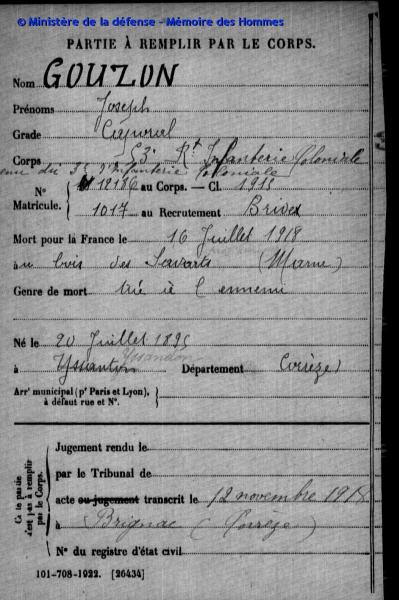 © Ministère de la défense - Mémoire des Hommes
PARTIE À REMPLIR PAR LE CORPS.
Nom GOUZON
Prénoms Joseph
Grade Caporal
Corps 53e Rt Infanterie Coloniale
venu du 3e d'Infanterie Coloniale
N° 12186 au Corps. — Cl. 1915
Matricule. 1017 au Recrutement Brives
Mort pour la France le 16 Juillet 1918
au bois des Savarts (Marne)
Genre de mort tué à l'ennemi
Né le 20 Juillet 1895
Yssandon
à Yssanton Département Corrèze
Arrt municipal (pr Paris et Lyon),
à défaut rue et N°.
Ce te partie n'est pas à remplir par le Corps.
Jugement rendu le
par le Tribunal de
acte ou jugement transcrit le 12 novembre 1918
à Brignac (Corrèze)
N° du registre d'état civil
101-708-1922. [26434]